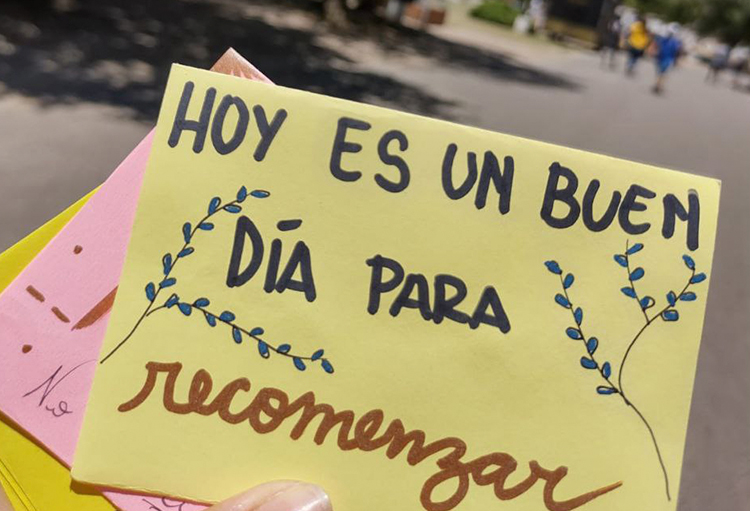 HOY ES UN BUEN
DÍA PARA
recomenzar